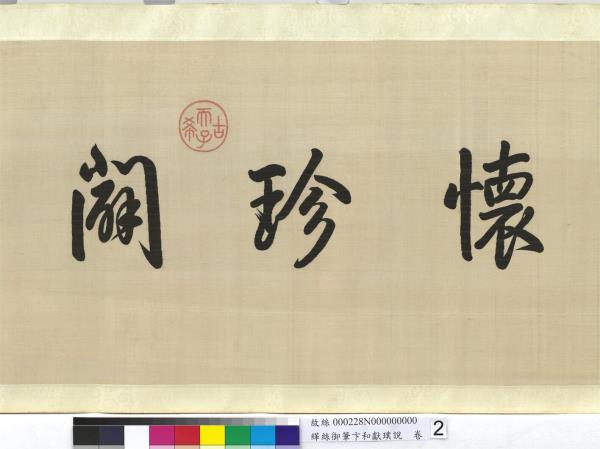 懷珍闢
古希天子
故絲 000228N000000000
緙絲御筆卞和獻璞說 卷
2